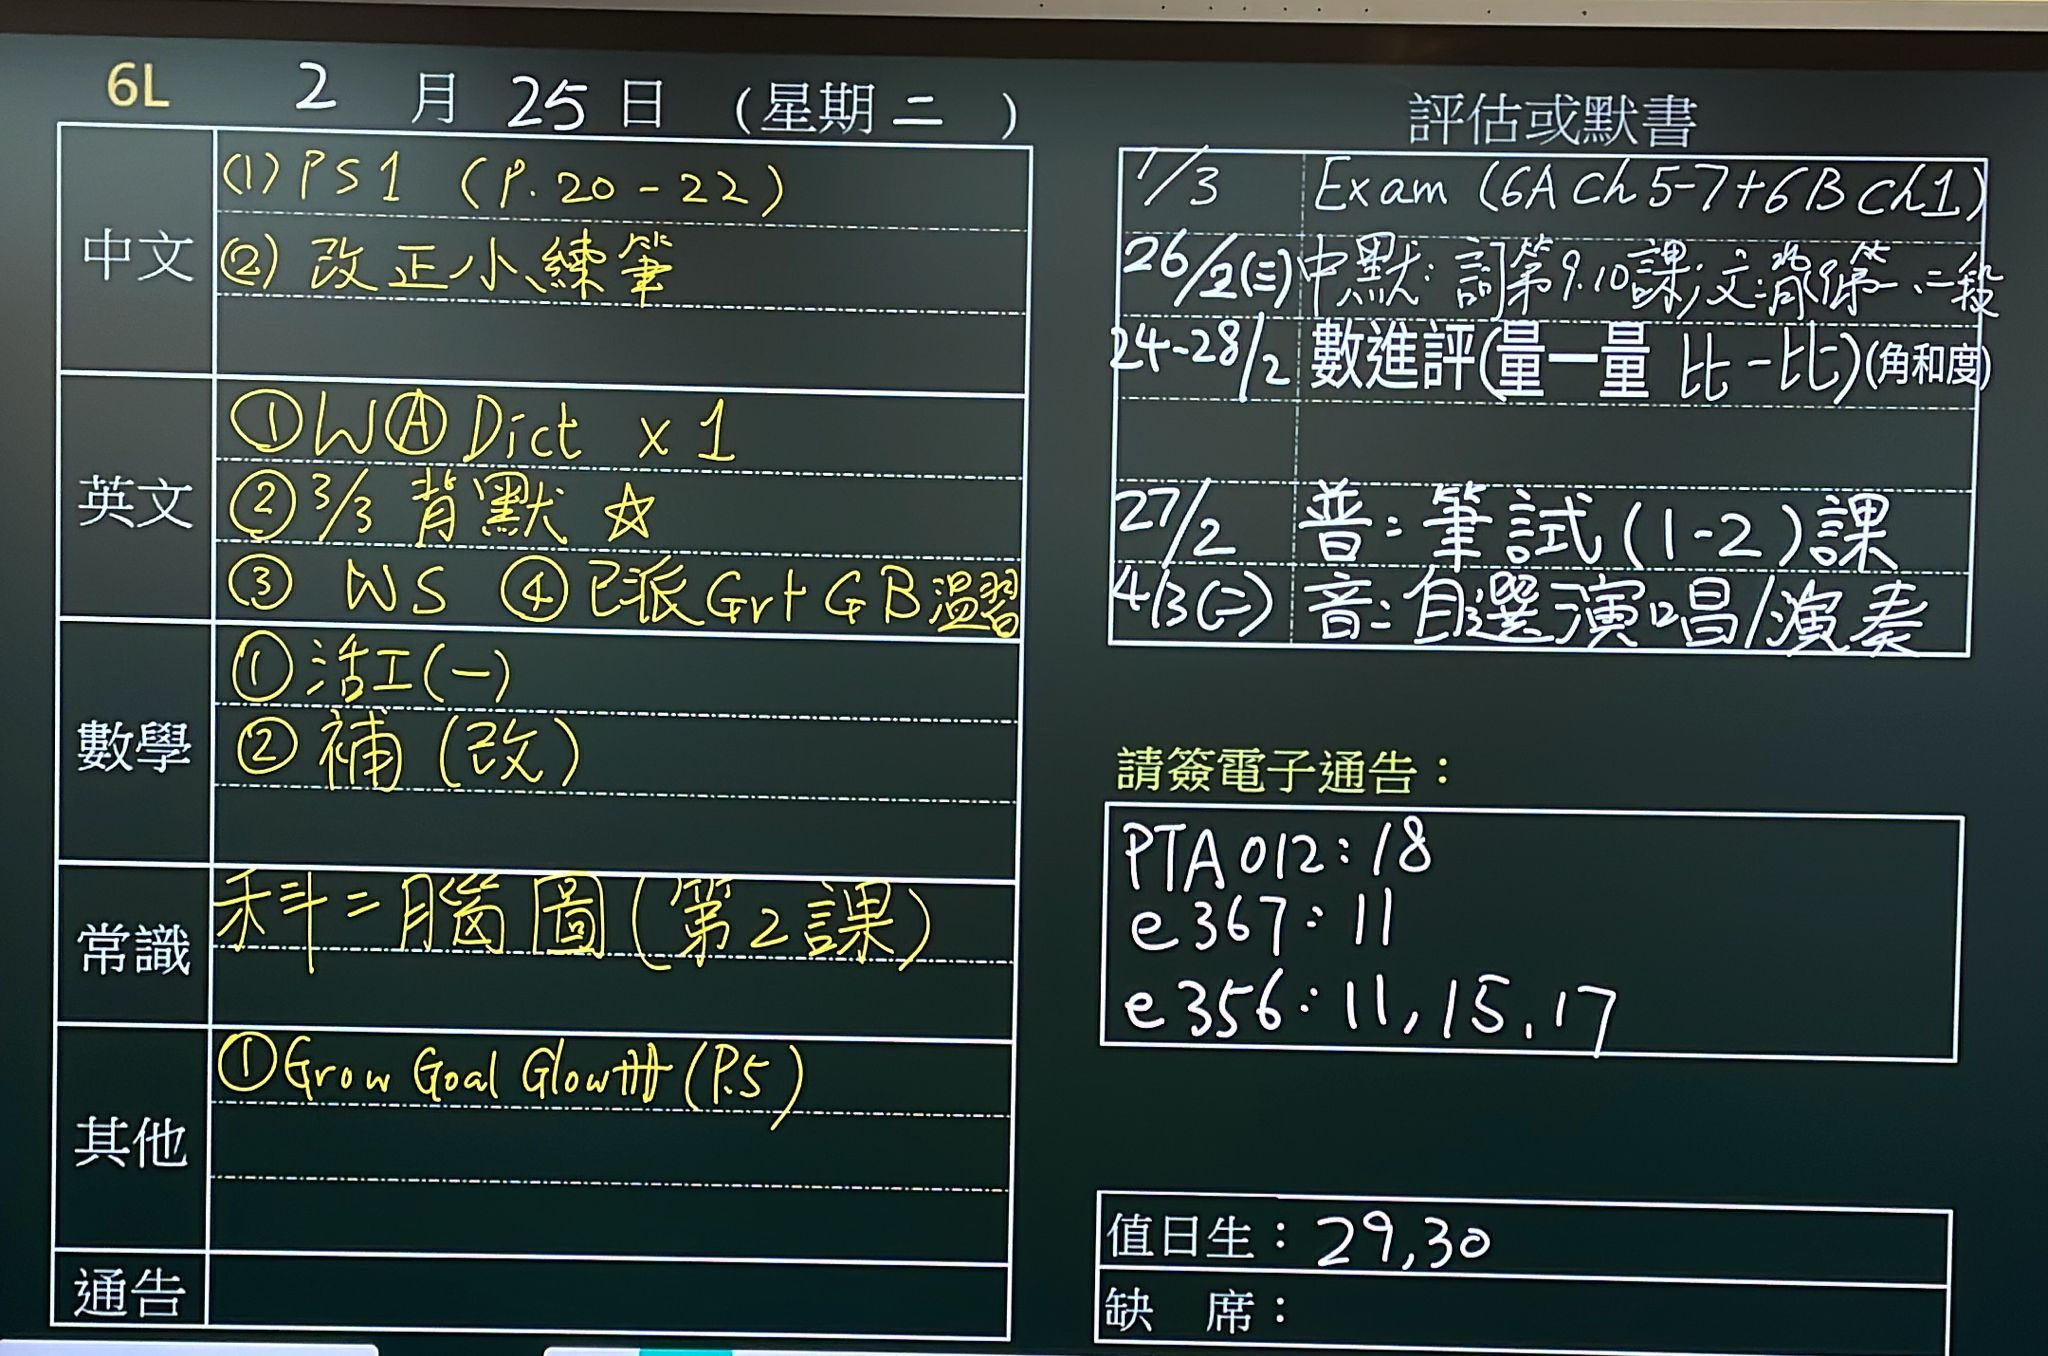 6L 2 月 25 日 (星期 二 )
中文
(1) PS1 (P.20-22)
(2) 改正小練筆
英文
① W Ⓐ Dict x 1
② 3/3 背默 ☆
③ WS ④ 已派 Gr+GB 溫習
數學
① 活工(一)
② 補 (改)
常識
科=腦圖(第2課)
其他
① Grow Goal Glow (P.5)
通告
評估或默書
1/3 Exam (6A Ch5-7+6B Ch1)
26/2(三) 中默: 詞第9.10課;文:背9第一、二段
24-28/2 數進評(量一量 比一比)(角和度)
27/2 普:筆試(1-2)課
4/3(二) 音:自選演唱/演奏
請簽電子通告:
PTA012:18
e367:11
e356:11,15,17
值日生:29,30
缺 席: